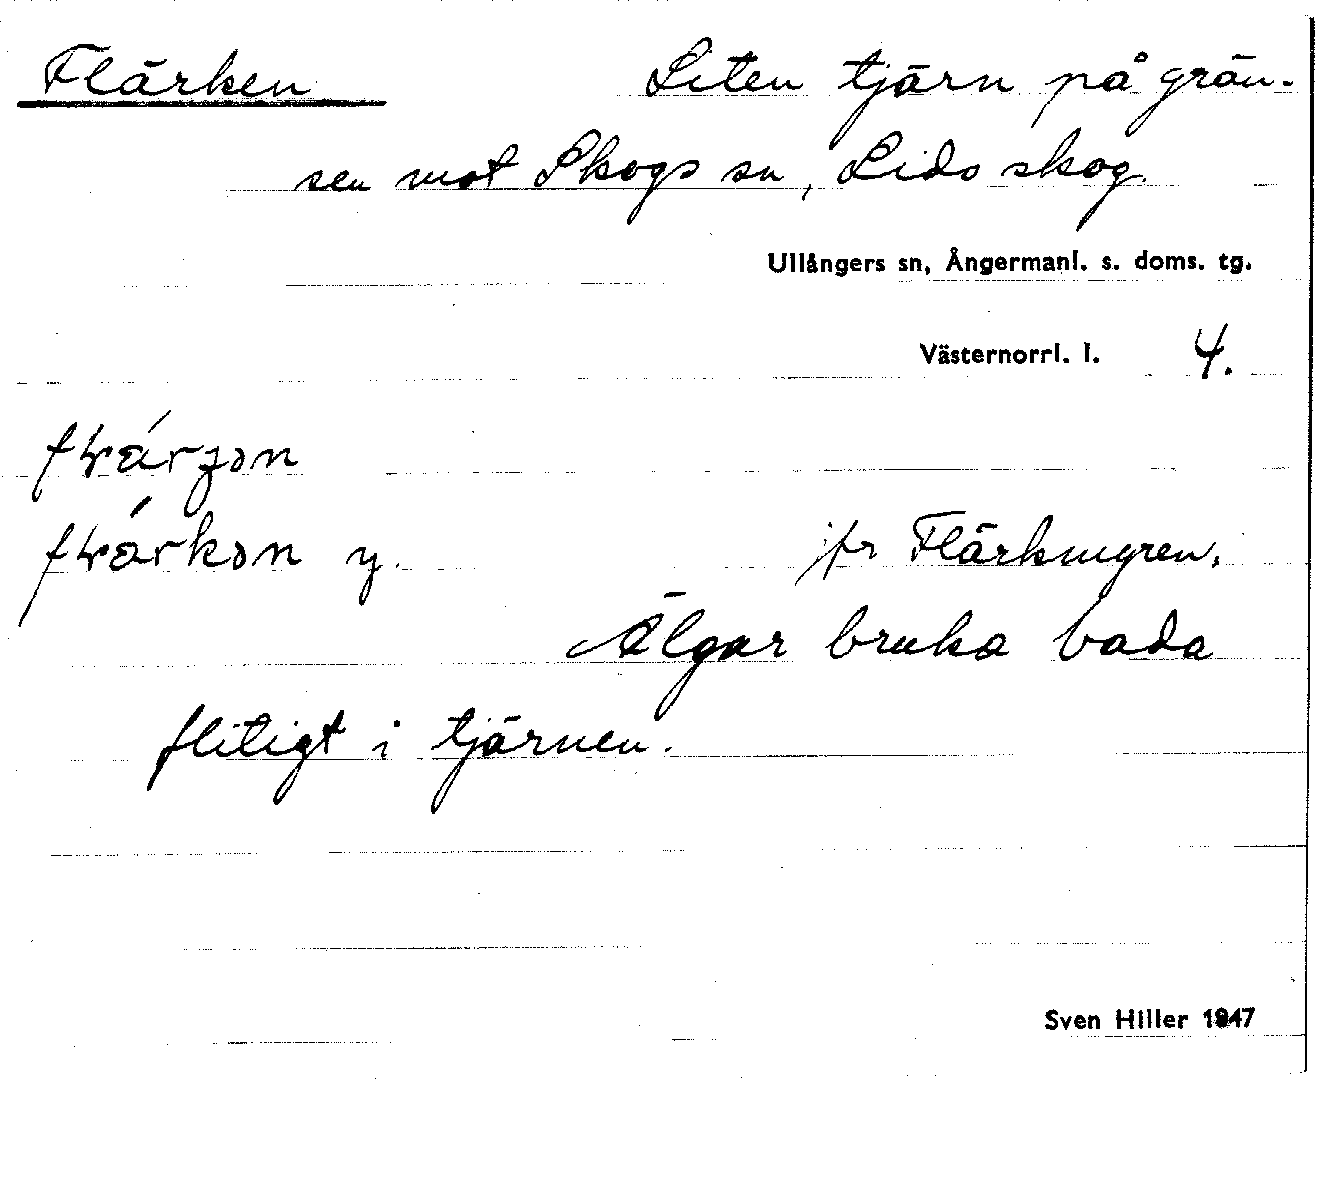 Flärken Liten tjärn på grän-
sen mot Skogs sn, Lido skog.
Ullångers sn, Ångermanl. s. doms. tg.
Västernorrl. l. 4.
y. jfr Flärkmyren.
Älgar bruka bada
flitigt i tjärnen.
Sven Hiller 1947